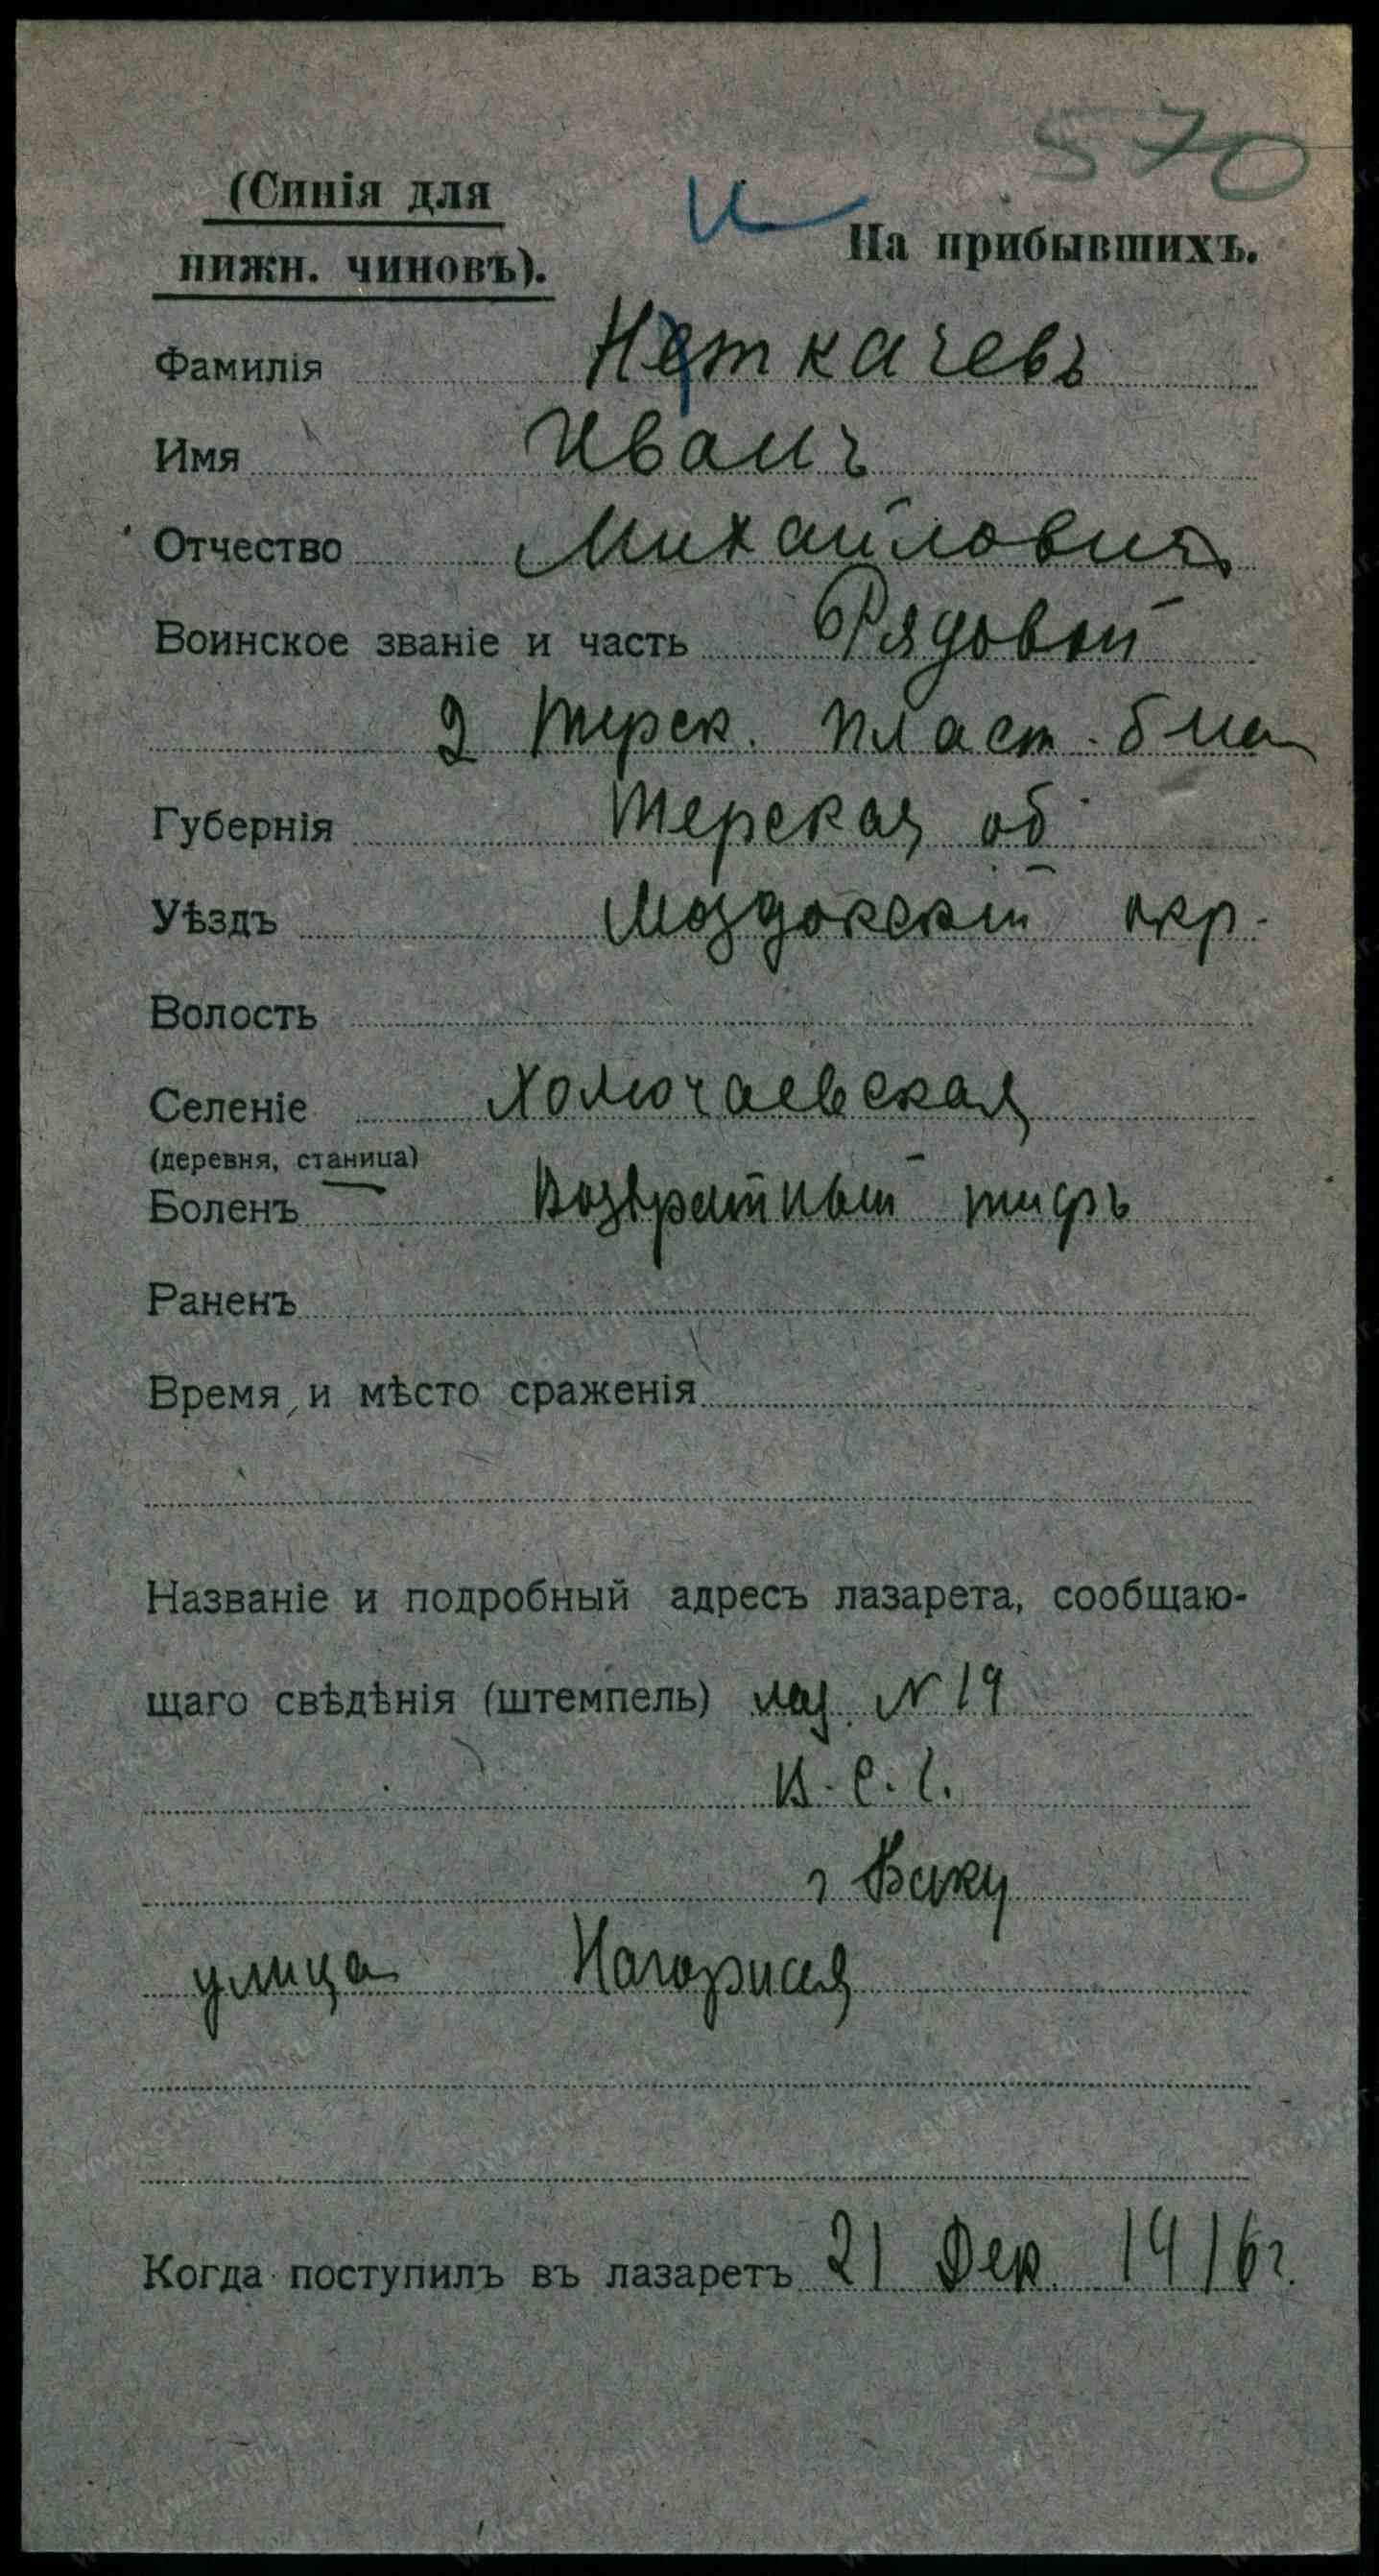 570
(Синія для
нижн. чиновъ).
На прибывшихъ.
Фамилія Неткачевъ
Имя Иванъ
Отчество Михайловичъ
Воинское званіе и часть Рядовой
2 Терск. пласт. б на
Губернія Терская об
Уѣздъ Моздокскій окр.
Волость
Селеніе Холючаевская
(деревня, станица)
Боленъ Возвратный тифъ
Раненъ
Время и мѣсто сраженія
Названіе и подробный адресъ лазарета, сообщаю-
щаго свѣдѣнія (штемпель) лаз. № 19
В. С. Г.
г Баку
улица Нагорная
Когда поступилъ въ лазаретъ 21 Дек. 1916 г.